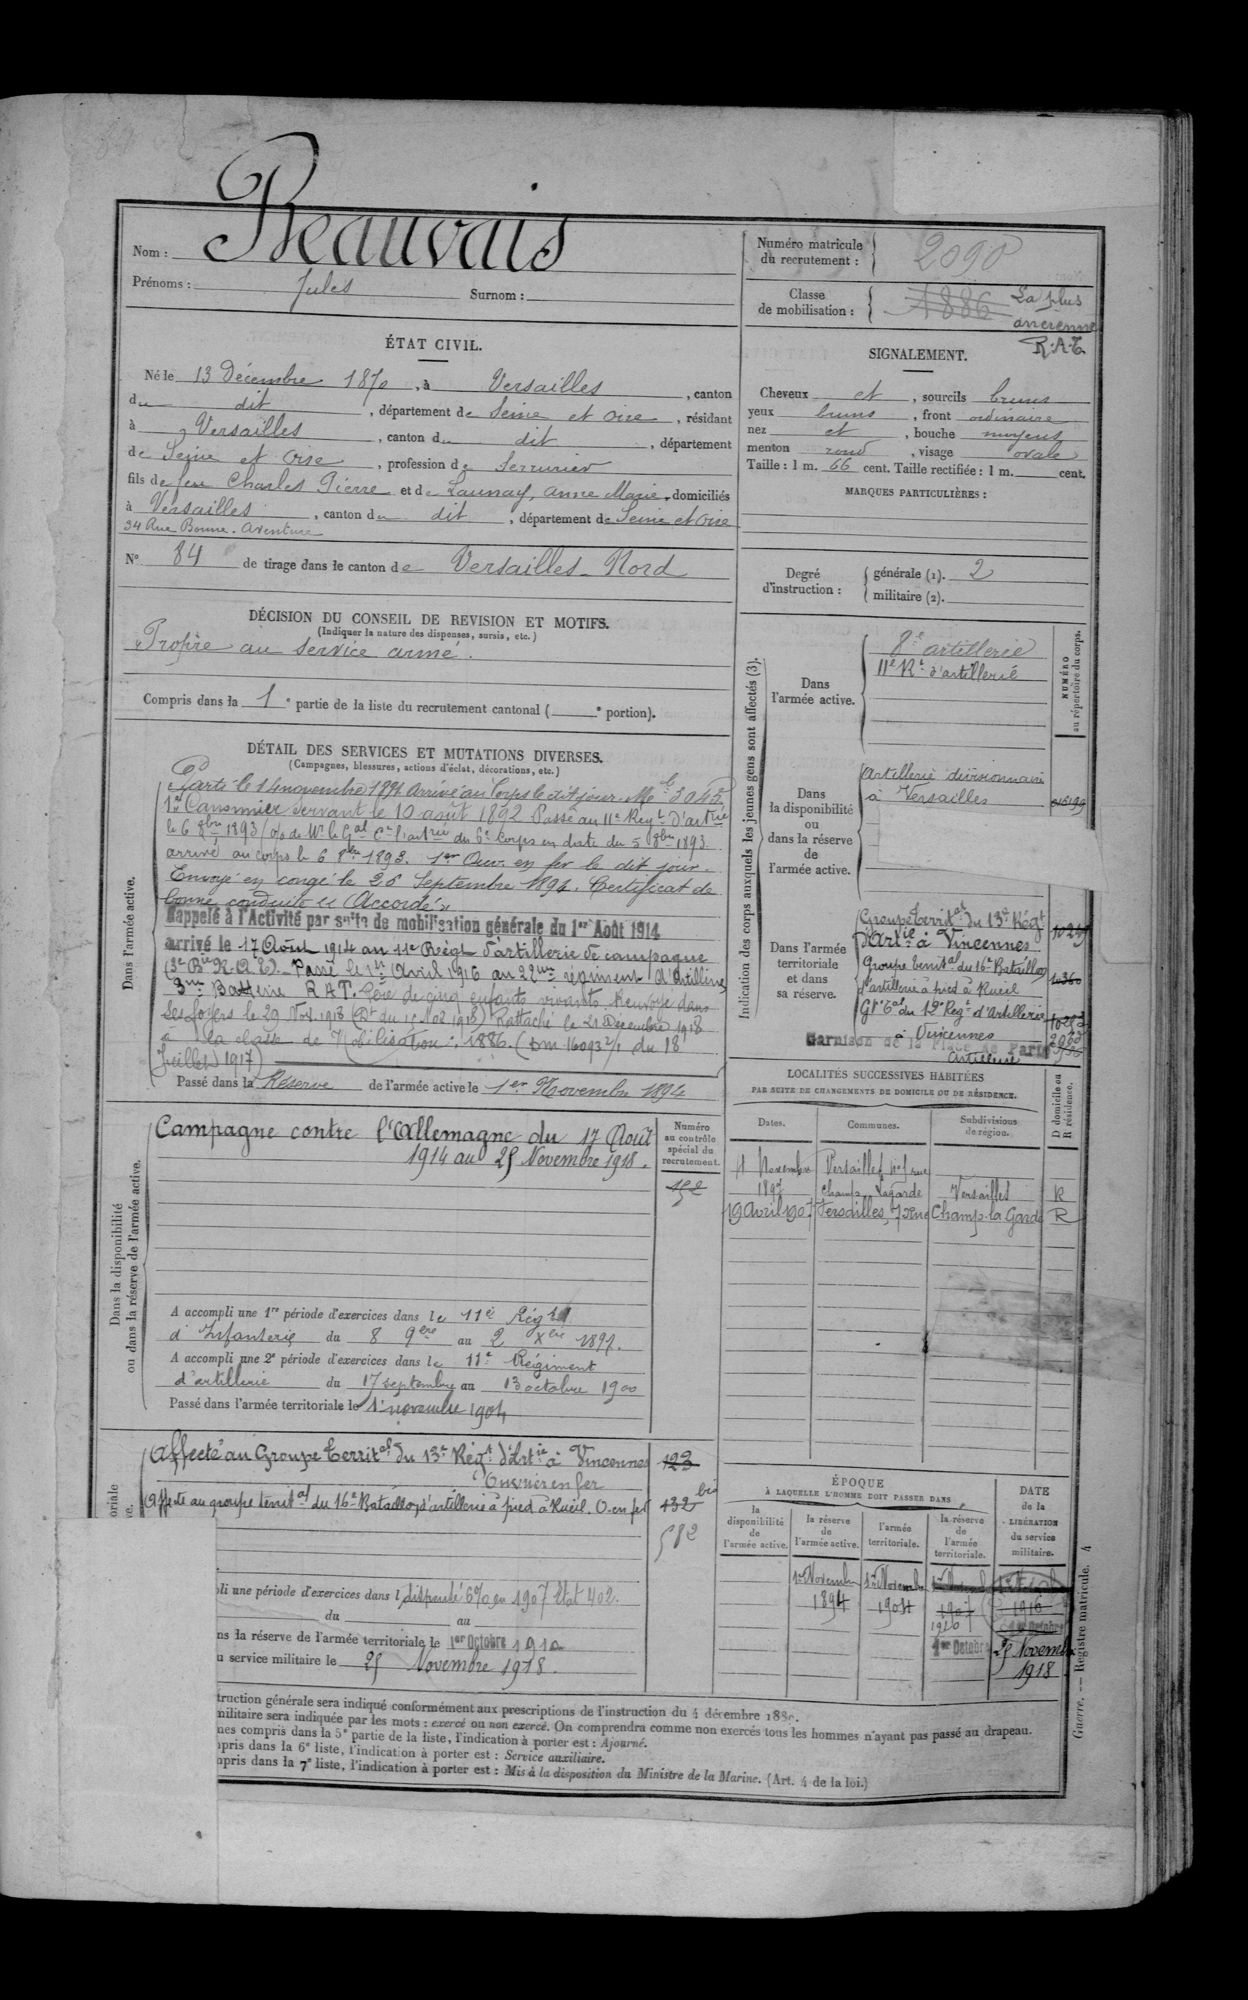 Nom : Beauvais
Prénoms : Jules Surnom :
Numéro matricule
du recrutement : 2090
Classe
de mobilisation : 1886 La plus
ancienne
R.A.T.
ÉTAT CIVIL.
Né le 13 Décembre 1870, à Versailles, canton
du dit, département de Seine et Oise, résidant
à Versailles, canton du dit, département
de Seine et Oise, profession de Serrurier
fils de feu Charles Pierre et de Launay, Anne Marie, domiciliés
à Versailles, canton du dit, département de Seine et Oise
34 Rue Bonne-Aventure
N° 84 de tirage dans le canton de Versailles-Nord
DÉCISION DU CONSEIL DE REVISION ET MOTIFS.
(Indiquer la nature des dispenses, sursis, etc.)
Propre au service armé.
Compris dans la 1e partie de la liste du recrutement cantonal ( e portion).
SIGNALEMENT.
Cheveux et, sourcils bruns
yeux bruns, front ordinaire
nez et, bouche moyens
menton rond, visage ovale
Taille : 1 m. 66 cent. Taille rectifiée : 1 m. cent.
MARQUES PARTICULIÈRES :
Degré
d'instruction :
générale (1). 2
militaire (2).
DÉTAIL DES SERVICES ET MUTATIONS DIVERSES.
(Campagnes, blessures, actions d'éclat, décorations, etc.)
Dans l'armée active.
Parti le 14 novembre 1891 Arrivé au Corps le dit jour. Mle 3045.
1er Canonnier servant le 10 août 1892 Passé au 11e Régt d'artrie
le 6 8bre 1893 (o/ de Mr le Gal Ct l'artrie du 6e Corps en date du 5 8bre 1893.
arrivé au corps le 6 8bre 1893. 1er Ouvr en fer le dit jour.
Envoyé en congé le 26 Septembre 1894. Certificat de
bonne conduite "Accordé"
Rappelé à l'Activité par suite de mobilisation générale du 1er Août 1914
arrivé le 17 Août 1914 au 11e Régt d'artillerie de campagne
(3e Bie R.A.T). Passé le 1er Avril 1916 au 22me régiment d'Artillerie
3me Batterie R A T. Père de cinq enfants vivants Renvoyé dans
ses foyers le 29 Nov. 1918 (Dt du 15 Nov 1918) Rattaché le 21 Décembre 1918
à la classe de Mobilisation : 1886. (Dm 16093 2/1 du 18
Juillet 1917)
Passé dans la Réserve de l'armée active le 1er Novembre 1894
Indication des corps auxquels les jeunes gens sont affectés (3).
NUMÉRO
au répertoire du corps.
Dans
l'armée active.
8e artillerie
11e Rt d'artillerie
Dans
la disponibilité
ou
dans la réserve
de
l'armée active.
Artillerie divisionnaire
à Versailles
Dans l'armée
territoriale
et dans
sa réserve.
Groupe territal du 13e Régt
d'Artie à Vincennes
Groupe territal du 16e Bataillon
d'artillerie à pied à Rueil
Gpe Tal du 12e Regt d'Artillerie
à Vincennes
Garnison de la Place de Paris
Artillerie
Dans la disponibilité
ou dans la réserve de l'armée active.
Campagne contre l'Allemagne du 17 Août
1914 au 25 Novembre 1918.
Numéro
au contrôle
spécial du
recrutement.
152
A accompli une 1re période d'exercices dans le 11e Régt
d'Infanterie du 8 9bre au 2 Xbre 1897.
A accompli une 2e période d'exercices dans le 11e Régiment
d'artillerie du 17 septembre au 13 octobre 1900
Passé dans l'armée territoriale le 1er novembre 1904
LOCALITÉS SUCCESSIVES HABITÉES
PAR SUITE DE CHANGEMENTS DE DOMICILE OU DE RÉSIDENCE.
Dates. Communes. Subdivisions
de région.
D domicile ou
R résidence.
4 Novembre Versailles, n°5 rue
Champ Lagarde Versailles R
19 Avril 1907 Versailles, 7 rue Champ-la-Garde R
oriale
ve.
Affecté au Groupe territal du 13e Régt d'Artie à Vincennes 123
Ouvrier en fer
Affecté au groupe territal du 16e Bataillon d'artillerie à pied à Rueil. O. en fer 432 bis
582
li une période d'exercices dans l dispensé 6% en 1907 Etat 402.
du au
ns la réserve de l'armée territoriale le 1er Octobre 1910
u service militaire le 25 Novembre 1918.
ÉPOQUE
À LAQUELLE L'HOMME DOIT PASSER DANS
la
disponibilité
de
l'armée active.
la réserve
de
l'armée active.
l'armée
territoriale.
la réserve
de
l'armée
territoriale.
DATE
de la
LIBÉRATION
du service
militaire.
1er Novembre
1894
1er Novembre
1904
1910
1er Octobre
1916
25 Novembre
1918
truction générale sera indiqué conformément aux prescriptions de l'instruction du 4 décembre 1889.
militaire sera indiquée par les mots : exercé ou non exercé. On comprendra comme non exercés tous les hommes n'ayant pas passé au drapeau.
mes compris dans la 5e partie de la liste, l'indication à porter est : Ajourné.
pris dans la 6e liste, l'indication à porter est : Service auxiliaire.
mpris dans la 7e liste, l'indication à porter est : Mis à la disposition du Ministre de la Marine. (Art. 4 de la loi.)
Guerre. — Registre matricule. 4